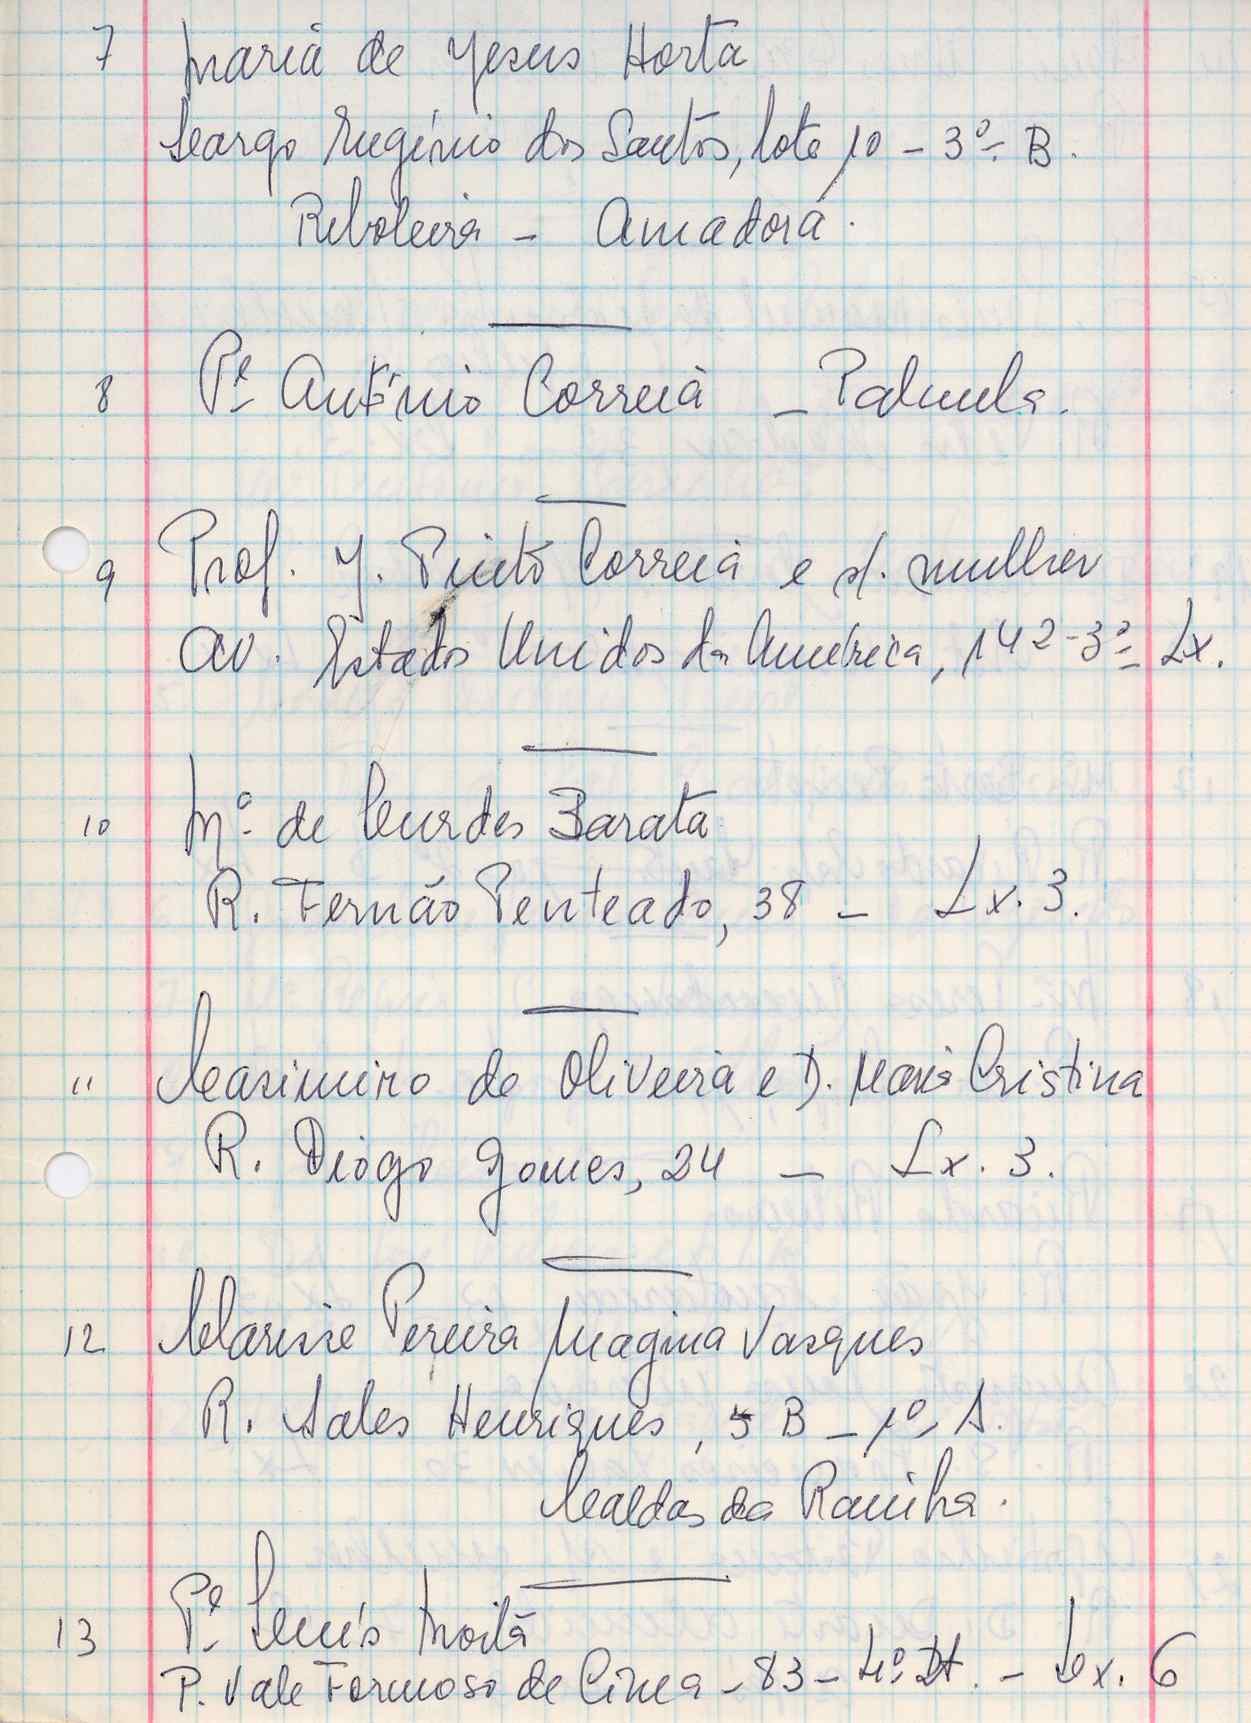 7 Maria de Jesus Horta
Largo Eugénio dos Santos, lote 10 - 3º- B.
Reboleira - Amadora.
8 Pe. António Correia - Palmela.
9 Prof. J. Pinto Correia e s/. mulher
Av. Estados Unidos da América, 142-3º- Lx.
10 Mª de Lurdes Barata
R. Fernão Penteado, 38 - Lx. 3.
11 Casimiro de Oliveira e D. Maria Cristina
R. Diogo Gomes, 24 - Lx. 3.
12 Clarisse Pereira Magina Vasques
R. Sales Henriques, 5 B - 1º- A.
Caldas da Rainha.
13 Pe. Luís Moita
P. Vale Formoso de Cima - 83 - 4º Dt. - Lx. 6